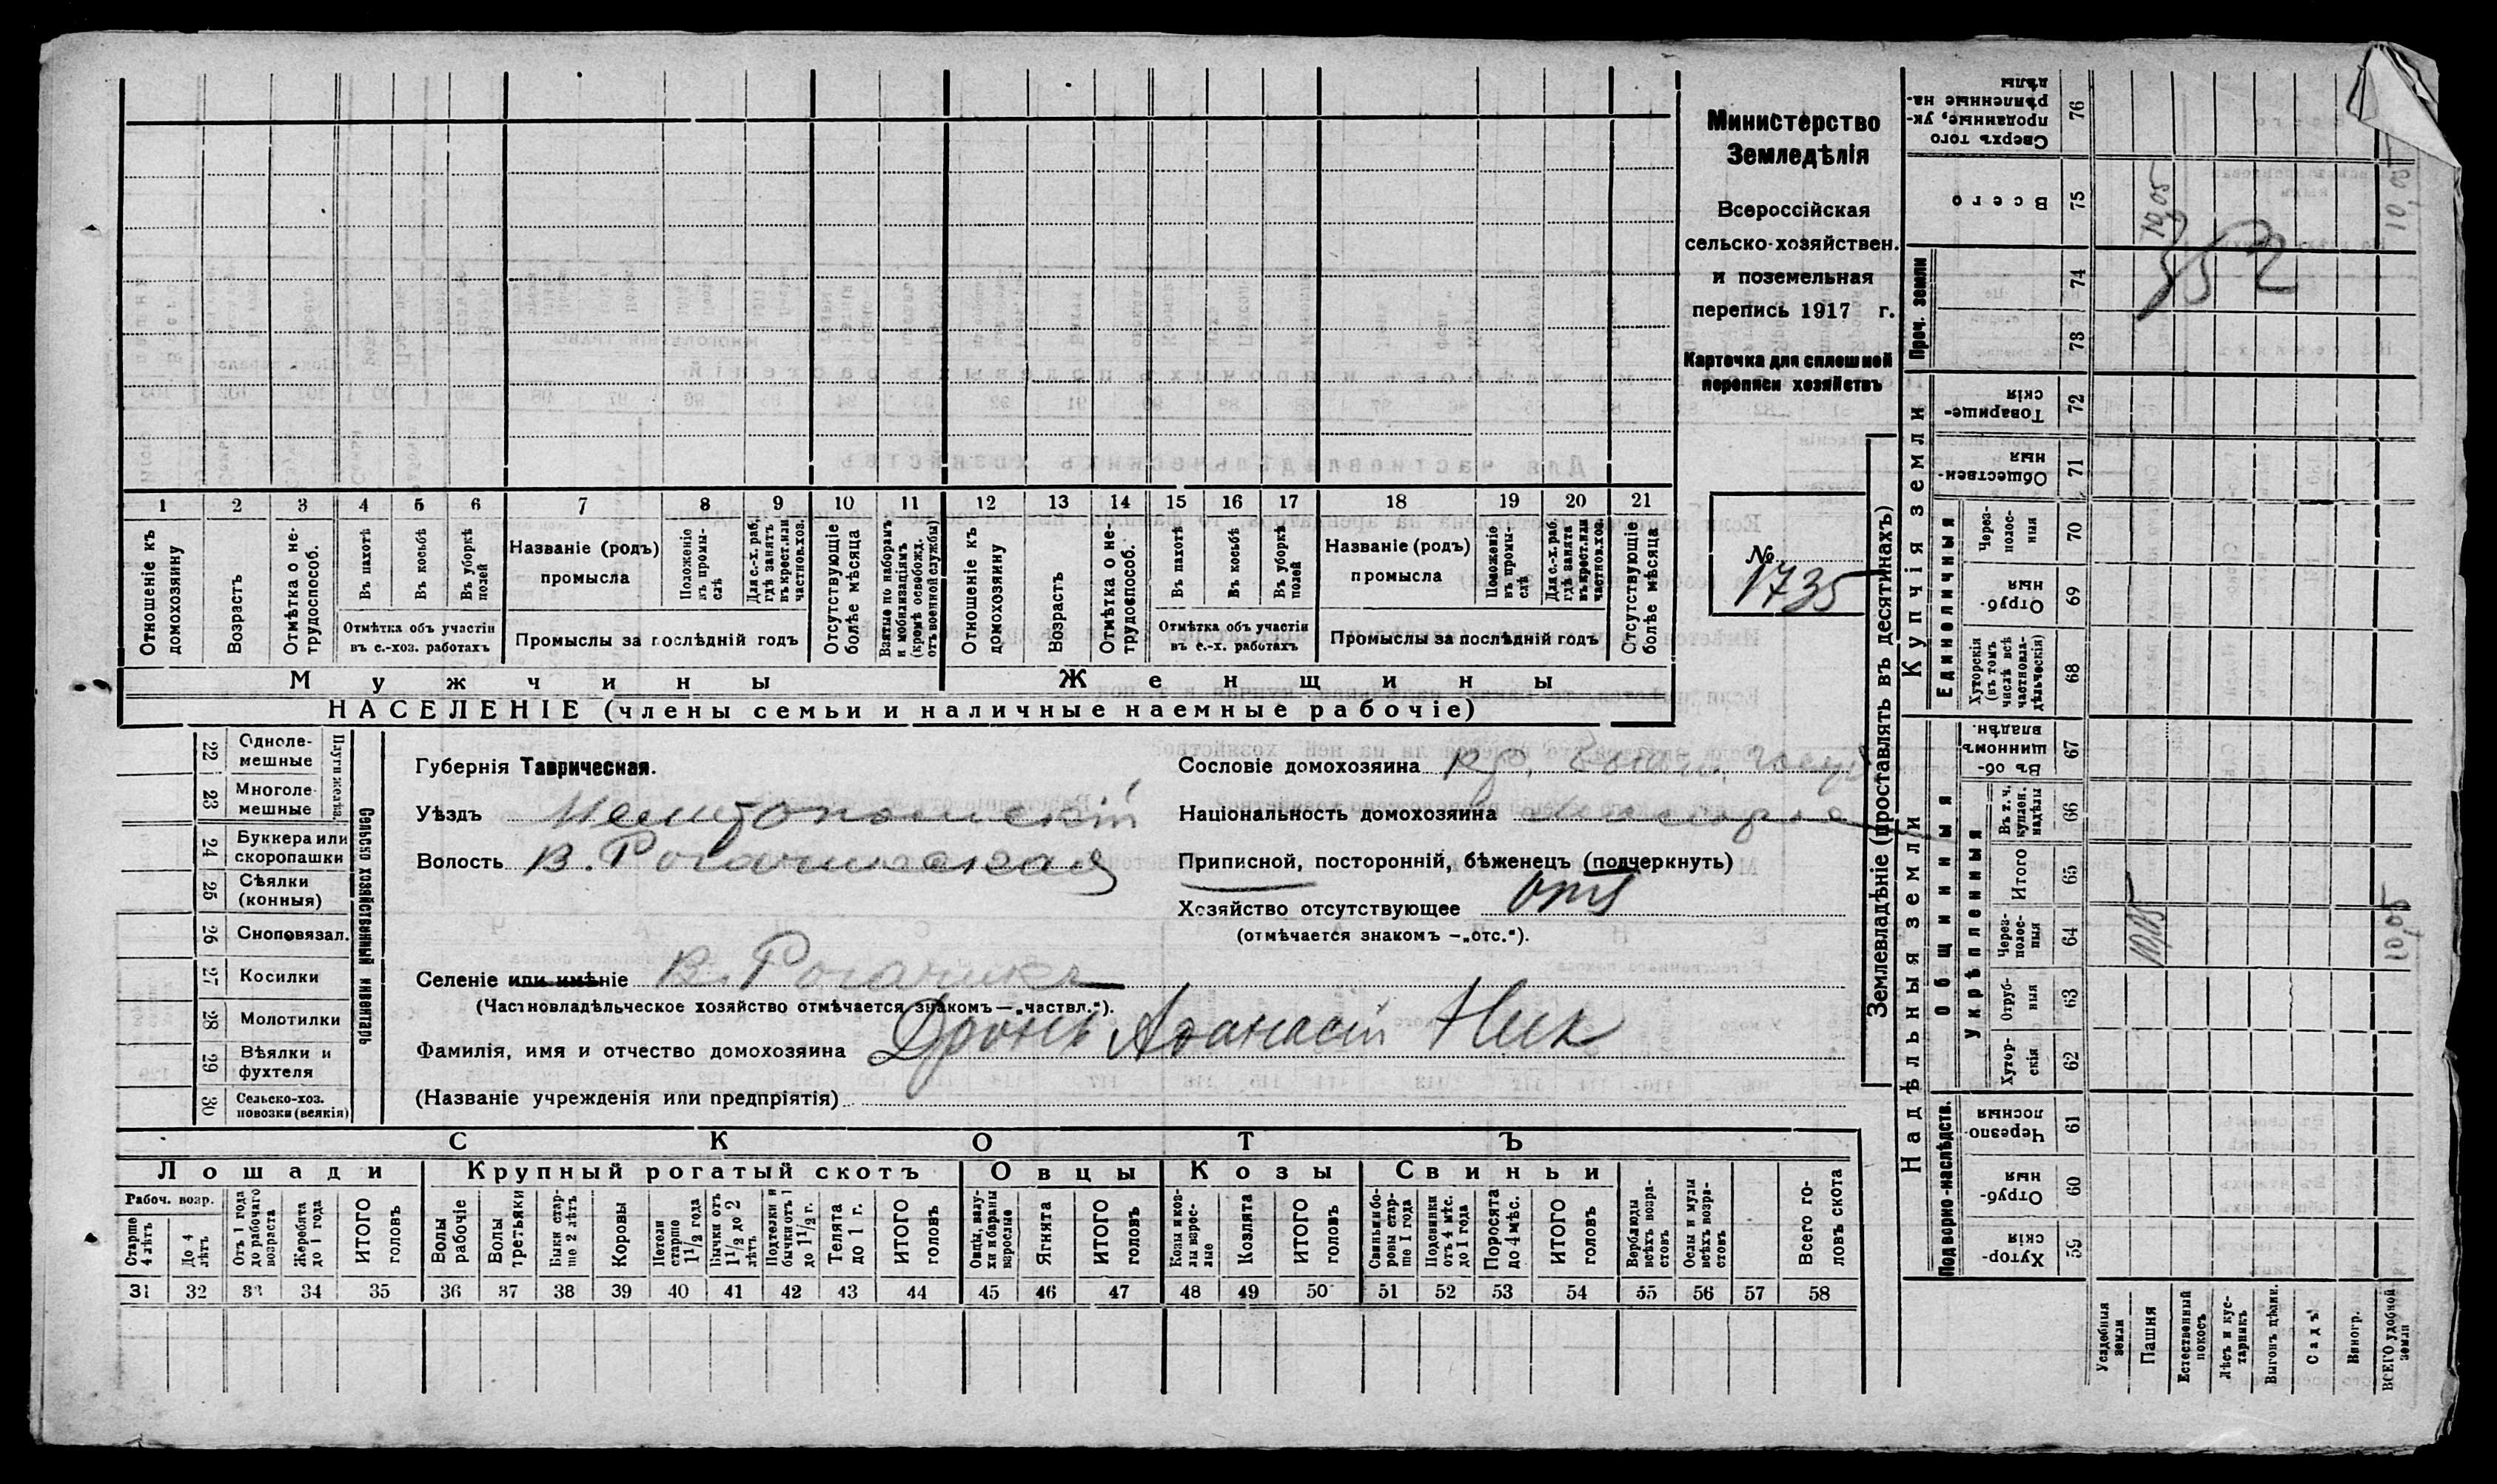 Министерство
Земледѣлія
Всероссійская
сельско-хозяйствен.
и поземельная
перепись 1917 г.
Карточка для сплошной
переписи хозяйствъ
№
1735
1 2 3 4 5 6 7 8 9 10 11 12 13 14 15 16 17 18 19 20 21
Отношеніе къ домохозяину
Возрастъ
Отмѣтка о не-трудоспособ.
Въ пахотѣ
Въ косьбѣ
Въ уборкѣ полей
Отмѣтка объ участіи
въ с.-хоз. работахъ
Названіе (родъ)
промысла
Положеніе въ промы-слѣ
Для с.-х. раб. гдѣ занятъ въ крест. или частнов. хоз.
Промыслы за послѣдній годъ
Отсутствующіе болѣе мѣсяца
Взятые по наборамъ и мобилизаціямъ (кромѣ освобожд. отъ военной службы)
Отношеніе къ домохозяину
Возрастъ
Отмѣтка о не-трудоспособ.
Въ пахотѣ
Въ косьбѣ
Въ уборкѣ полей
Отмѣтка объ участіи
въ с.-х. работахъ
Названіе (родъ)
промысла
Положеніе въ промы-слѣ
Для с.-х. раб. гдѣ занята въ крест. или частнов. хоз.
Промыслы за послѣдній годъ
Отсутствующіе болѣе мѣсяца
Мужчины
Женщины
НАСЕЛЕНІЕ (члены семьи и наличные наемные рабочіе)
22 Одноле-мешные
23 Многоле-мешные
24 Буккера или скоропашки
25 Сѣялки (конныя)
26 Сноповязал.
27 Косилки
28 Молотилки
29 Вѣялки и фухтеля
30 Сельско-хоз. повозки (всякія)
Сельско хозяйственный инвентарь
Губернія Таврическая.
Уѣздъ Мелитопольскій
Волость В. Рогачикская
Селеніе или имѣніе В. Рогачикъ
(Частновладѣльческое хозяйство отмѣчается знакомъ—„частвл.“).
Фамилія, имя и отчество домохозяина Дронъ Аѳанасій Ник
(Названіе учрежденія или предпріятія)
Сословіе домохозяина кр.
Національность домохозяина
Приписной, посторонній, бѣженецъ (подчеркнуть)
Хозяйство отсутствующее отс
(отмѣчается знакомъ —„отс.“).
СКОТЪ
Лошади
Крупный рогатый скотъ
Овцы
Козы
Свиньи
Рабоч. возр.
Старше 4 лѣтъ
До 4 лѣтъ
Отъ 1 года до рабочаго возраста
Жеребята до 1 года
ИТОГО головъ
Волы рабочіе
Волы третьяки
Быки стар-ше 2 лѣтъ
Коровы
Нетели старше 1 1/2 года
Бычки отъ 1 1/2 до 2 лѣтъ
Подтелки и бычки отъ 1 до 1 1/2 г.
Телята до 1 г.
ИТОГО головъ
Овцы, валу-хи и бараны взрослые
Ягнята
ИТОГО головъ
Козы и коз-лы взрос-лые
Козлята
ИТОГО головъ
Свиньи и бо-ровы стар-ше 1 года
Подсвинки отъ 4 мѣс. до 1 года
Поросята до 4 мѣс.
ИТОГО головъ
Верблюды всѣхъ возра-стовъ
Ослы и мулы всѣхъ возра-стовъ
Всего го-ловъ скота
31 32 33 34 35 36 37 38 39 40 41 42 43 44 45 46 47 48 49 50 51 52 53 54 55 56 57 58
Землевладѣніе (проставлять въ десятинахъ)
Надѣльныя земли
Купчія земли
Проч. земли
Подворно-наслѣдств.
Общинныя
Укрѣпленныя
Единоличныя
Сверхъ того проданные, ук-рѣпленные на-дѣлы 76
Всего 75
74
73
Товарище-скія 72
Обществен-ныя 71
Через-полос-ныя 70
Отруб-ныя 69
Хуторскія (въ томъ числѣ всѣ частновла-дѣльческія) 68
Въ об-щинномъ владѣн. 67
Въ т. ч. куплен. надѣлы 66
Итого 65
Через-полос-ныя 64
Отруб-ныя 63
Хутор-скія 62
Черезпо-лосныя 61
Отруб-ныя 60
Хутор-скія 59
352
Усадебныя земли
Пашня
Естественный покосъ
Лѣсъ и кус-тарникъ
Выгонъ цѣлин.
Садъ
Виногр.
ВСЕГО удобной земли